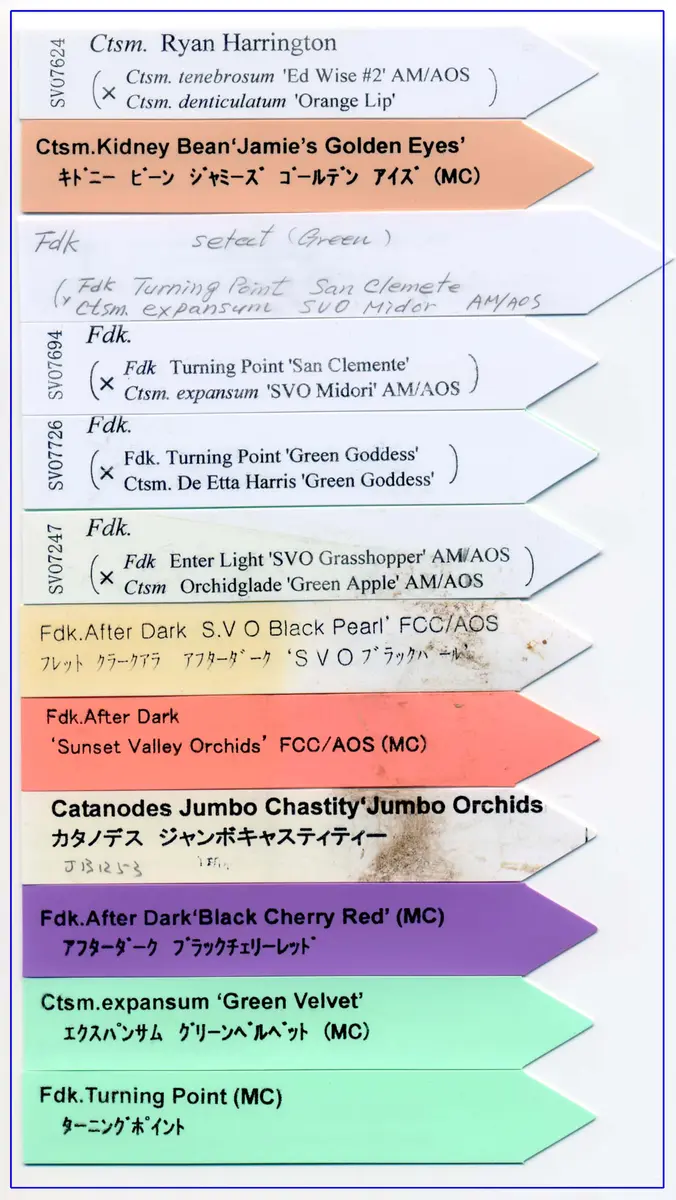 SVO7624
Ctsm. Ryan Harrington
( × Ctsm. tenebrosum 'Ed Wise #2' AM/AOS
Ctsm. denticulatum 'Orange Lip' )
Ctsm.Kidney Bean‘Jamie’s Golden Eyes’
ｷﾄﾞﾆｰ ﾋﾞｰﾝ ｼﾞｬﾐｰｽﾞ ｺﾞｰﾙﾃﾞﾝ ｱｲｽﾞ (MC)
Fdk setect (Green)
( Fdk Turning Point San Clemete
× Ctsm. expansum SVO Midor AM/AOS
SVO7694
Fdk.
( × Fdk Turning Point 'San Clemente'
Ctsm. expansum 'SVO Midori' AM/AOS )
SVO7726
Fdk.
( × Fdk. Turning Point 'Green Goddess'
Ctsm. De Etta Harris 'Green Goddess' )
SVO7247
Fdk.
( × Fdk Enter Light 'SVO Grasshopper' AM/AOS
Ctsm Orchidglade 'Green Apple' AM/AOS )
Fdk.After Dark S.V O Black Pearl’ FCC/AOS
ﾌﾚｯﾄ ｸﾗｰｸｱﾗ ｱﾌﾀｰﾀﾞｰｸ ‘S V O ﾌﾞﾗｯｸﾊﾟｰﾙ’
Fdk.After Dark
‘Sunset Valley Orchids’ FCC/AOS (MC)
Catanodes Jumbo Chastity‘Jumbo Orchids
カタノデス ジャンボキャスティティー
J13125-3
Fdk.After Dark‘Black Cherry Red’ (MC)
ｱﾌﾀｰﾀﾞｰｸ ﾌﾞﾗｯｸﾁｪﾘｰﾚｯﾄﾞ
Ctsm.expansum ‘Green Velvet’
ｴｸｽﾊﾟﾝｻﾑ ｸﾞﾘｰﾝﾍﾞﾙﾍﾞｯﾄ (MC)
Fdk.Turning Point (MC)
ﾀｰﾆﾝｸﾞﾎﾟｲﾝﾄ